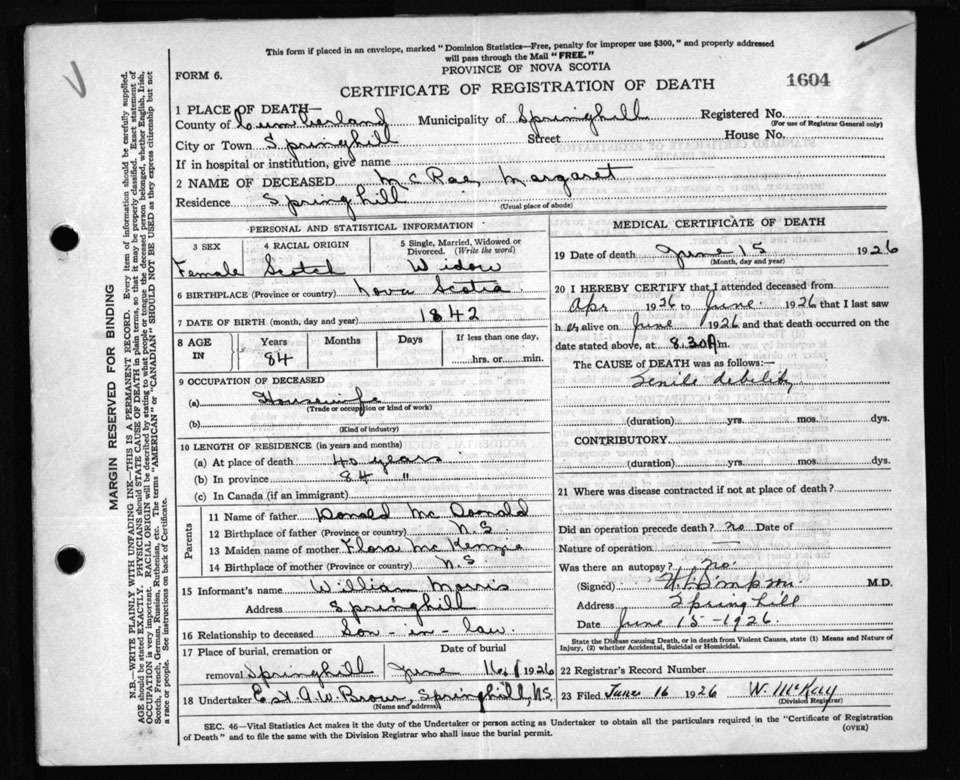 This form if placed in an envelope, marked "Dominion Statistics—Free, penalty for improper use $300," and properly addressed
will pass through the Mail "FREE."
PROVINCE OF NOVA SCOTIA
FORM 6.
CERTIFICATE OF REGISTRATION OF DEATH
1604
1 PLACE OF DEATH—
County of Cumberland Municipality of Springhill Registered No.
(For use of Registrar General only)
City or Town Springhill Street House No.
If in hospital or institution, give name
2 NAME OF DECEASED McRae, Margaret
Residence Springhill
(Usual place of abode)
PERSONAL AND STATISTICAL INFORMATION
3 SEX 4 RACIAL ORIGIN 5 Single, Married, Widowed or
Divorced. (Write the word)
Female Scotch Widow
6 BIRTHPLACE (Province or country) Nova Scotia
7 DATE OF BIRTH (month, day and year) 1842
8 AGE IN Years Months Days If less than one day,
84 hrs. or min.
9 OCCUPATION OF DECEASED
(a) Housewife
(Trade or occupation or kind of work)
(b)
(Kind of industry)
10 LENGTH OF RESIDENCE (in years and months)
(a) At place of death 40 years
(b) In province 84 "
(c) In Canada (if an immigrant)
Parents
11 Name of father Donald McDonald
12 Birthplace of father (Province or country) N.S
13 Maiden name of mother Flora McKenzie
14 Birthplace of mother (Province or country) N.S
15 Informant's name William Morris
Address Springhill
16 Relationship to deceased Son-in-law
17 Place of burial, cremation or Date of burial
removal Springhill June 16 1926
18 Undertaker E & A.W. Brown, Springhill, N.S
(Name and address)
MEDICAL CERTIFICATE OF DEATH
19 Date of death June 15 1926
(Month, day and year)
20 I HEREBY CERTIFY that I attended deceased from
Apr 1926 to June 1926 that I last saw
h er alive on June 1926 and that death occurred on
date stated above, at 8.30 m.
The CAUSE of DEATH was as follows:—
Senile debility
(duration) yrs. mos. dys.
CONTRIBUTORY
(duration) yrs. mos. dys.
21 Where was disease contracted if not at place of death?
Did an operation precede death? no Date of
Nature of operation —
Was there an autopsy? no.
(Signed) Simpson M.D.
Address Springhill
Date June 15-1926.
State the Disease causing Death, or in death from Violent Causes, state (1) Means and Nature of
Injury, (2) whether Accidental, Suicidal or Homicidal.
22 Registrar's Record Number
23 Filed June 16 1926 W. McKay
(Division Registrar)
SEC. 46—Vital Statistics Act makes it the duty of the Undertaker or person acting as Undertaker to obtain all the particulars required in the "Certificate of Registration
of Death" and to file the same with the Division Registrar who shall issue the burial permit.
(OVER)
MARGIN RESERVED FOR BINDING
N.B.—WRITE PLAINLY WITH UNFADING INK—THIS IS A PERMANENT RECORD. Every item of information should be carefully supplied.
AGE should be stated EXACTLY. PHYSICIANS should STATE CAUSE OF DEATH in plain terms, so that it may be properly classified. Exact statement of
OCCUPATION is very important. RACIAL ORIGIN will be described by stating to what people or tongue the deceased person belonged, whether English, Irish,
Scotch, French, German, Russian, Ruthenian, etc. The terms "AMERICAN" or "CANADIAN" SHOULD NOT BE USED as they express citizenship but not
a race or people. See instructions on back of Certificate.